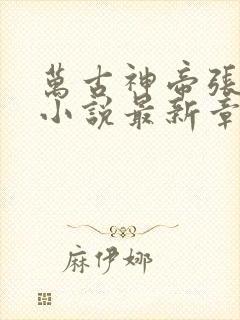 萬古神帝張
小説最新章
麻伊娜